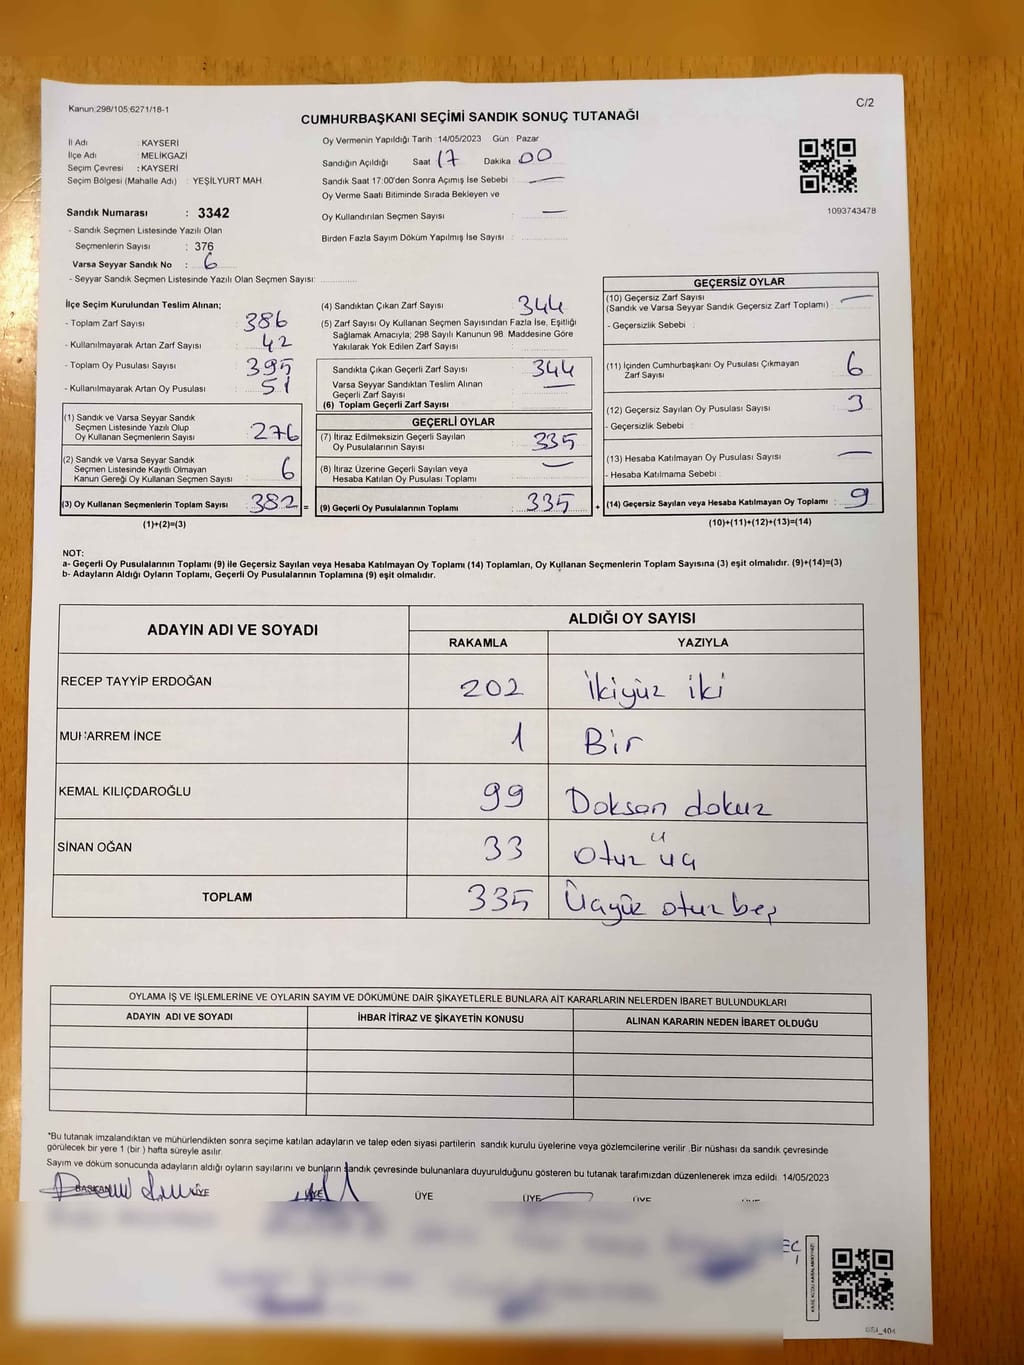 Kanun:298/105;6271/18-1
C/2
CUMHURBAŞKANI SEÇİMİ SANDIK SONUÇ TUTANAĞI
İl Adı : KAYSERİ
İlçe Adı : MELİKGAZİ
Seçim Çevresi : KAYSERİ
Seçim Bölgesi (Mahalle Adı) : YEŞİLYURT MAH.
Sandık Numarası : 3342
- Sandık Seçmen Listesinde Yazılı Olan
Seçmenlerin Sayısı : 376
Varsa Seyyar Sandık No : 6
- Seyyar Sandık Seçmen Listesinde Yazılı Olan Seçmen Sayısı:
Oy Vermenin Yapıldığı Tarih :14/05/2023 Gün : Pazar
Sandığın Açıldığı Saat 17 Dakika : 00
Sandık Saat 17:00'den Sonra Açımış İse Sebebi : —
Oy Verme Saati Bitiminde Sırada Bekleyen ve
Oy Kullandırılan Seçmen Sayısı : —
Birden Fazla Sayım Döküm Yapılmış İse Sayısı :
1093743478
İlçe Seçim Kurulundan Teslim Alınan;
- Toplam Zarf Sayısı : 386
- Kullanılmayarak Artan Zarf Sayısı : 42
- Toplam Oy Pusulası Sayısı : 395
- Kullanılmayarak Artan Oy Pusulası : 51
(1) Sandık ve Varsa Seyyar Sandık
Seçmen Listesinde Yazılı Olup
Oy Kullanan Seçmenlerin Sayısı : 276
(2) Sandık ve Varsa Seyyar Sandık
Seçmen Listesinde Kayıtlı Olmayan
Kanun Gereği Oy Kullanan Seçmen Sayısı : 6
(3) Oy Kullanan Seçmenlerin Toplam Sayısı : 382 =
(1)+(2)=(3)
(4) Sandıktan Çıkan Zarf Sayısı : 344
(5) Zarf Sayısı Oy Kullanan Seçmen Sayısından Fazla İse, Eşitliği
Sağlamak Amacıyla; 298 Sayılı Kanunun 98. Maddesine Göre
Yakılarak Yok Edilen Zarf Sayısı :
Sandıkta Çıkan Geçerli Zarf Sayısı : 344
Varsa Seyyar Sandıktan Teslim Alınan
Geçerli Zarf Sayısı : —
(6) Toplam Geçerli Zarf Sayısı :
GEÇERLİ OYLAR
(7) İtiraz Edilmeksizin Geçerli Sayılan
Oy Pusulalarının Sayısı : 335
(8) İtiraz Üzerine Geçerli Sayılan veya
Hesaba Katılan Oy Pusulası Toplamı : —
(9) Geçerli Oy Pusulalarının Toplamı : 335 +
GEÇERSİZ OYLAR
(10) Geçersiz Zarf Sayısı
(Sandık ve Varsa Seyyar Sandık Geçersiz Zarf Toplamı) : —
- Geçersizlik Sebebi :
(11) İçinden Cumhurbaşkanı Oy Pusulası Çıkmayan
Zarf Sayısı : 6
(12) Geçersiz Sayılan Oy Pusulası Sayısı : 3
- Geçersizlik Sebebi :
(13) Hesaba Katılmayan Oy Pusulası Sayısı : —
- Hesaba Katılmama Sebebi :
(14) Geçersiz Sayılan veya Hesaba Katılmayan Oy Toplamı : 9
(10)+(11)+(12)+(13)=(14)
NOT:
a- Geçerli Oy Pusulalarının Toplamı (9) ile Geçersiz Sayılan veya Hesaba Katılmayan Oy Toplamı (14) Toplamları, Oy Kullanan Seçmenlerin Toplam Sayısına (3) eşit olmalıdır. (9)+(14)=(3)
b- Adayların Aldığı Oyların Toplamı, Geçerli Oy Pusulalarının Toplamına (9) eşit olmalıdır.
ADAYIN ADI VE SOYADI
ALDIĞI OY SAYISI
RAKAMLA YAZIYLA
RECEP TAYYİP ERDOĞAN 202 İkiyüz iki
MUHARREM İNCE 1 Bir
KEMAL KILIÇDAROĞLU 99 Doksan dokuz
SİNAN OĞAN 33 Otuz üç
TOPLAM 335 Üçyüz otuz beş
OYLAMA İŞ VE İŞLEMLERİNE VE OYLARIN SAYIM VE DÖKÜMÜNE DAİR ŞİKAYETLERLE BUNLARA AİT KARARLARIN NELERDEN İBARET BULUNDUKLARI
ADAYIN ADI VE SOYADI İHBAR İTİRAZ VE ŞİKAYETİN KONUSU ALINAN KARARIN NEDEN İBARET OLDUĞU
*Bu tutanak imzalandıktan ve mühürlendikten sonra seçime katılan adayların ve talep eden siyasi partilerin sandık kurulu üyelerine veya gözlemcilerine verilir. Bir nüshası da sandık çevresinde
görülecek bir yere 1 (bir ) hafta süreyle asılır.
Sayım ve döküm sonucunda adayların aldığı oyların sayılarını ve bunların sandık çevresinde bulunanlara duyurulduğunu gösteren bu tutanak tarafımızdan düzenlenerek imza edildi. 14/05/2023
BAŞKAN ÜYE ÜYE ÜYE ÜYE ÜYE